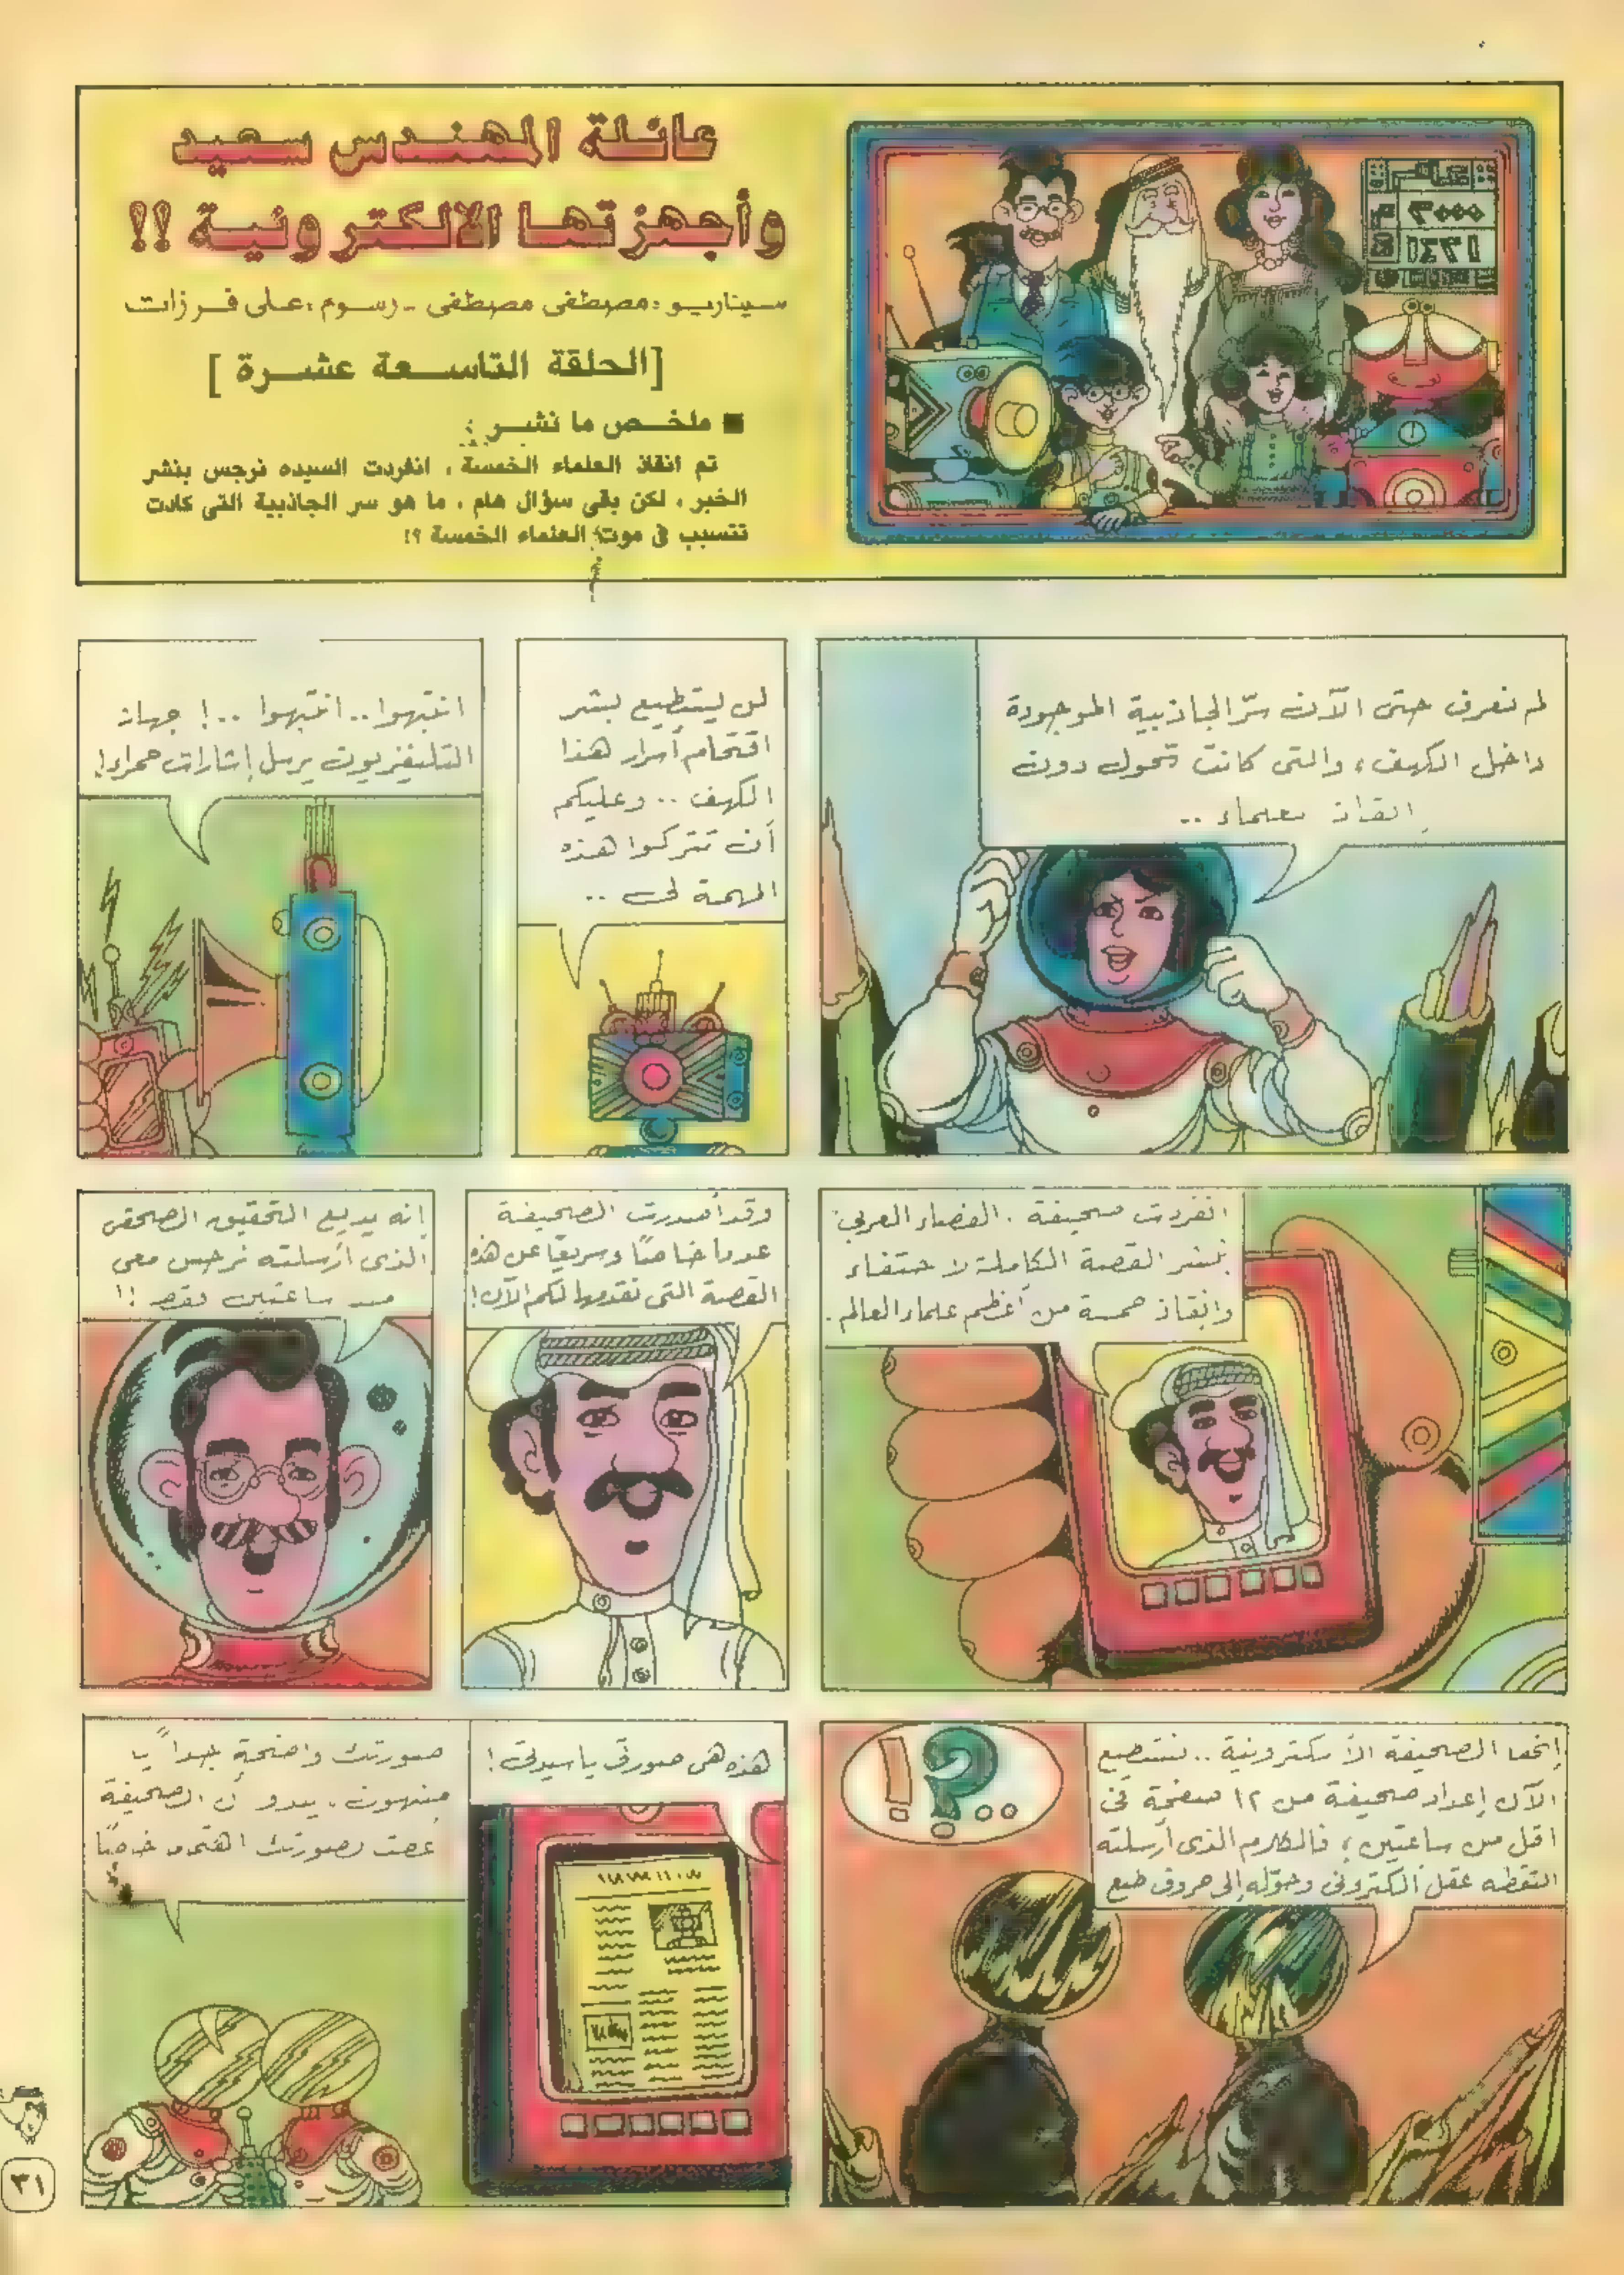 عائلة المهندس سعيد
وأجهزتها الالكترونية !!
سيناريو : مصطفى مصطفى - رسوم : على فرزات
[الحلقة التاسعة عشرة ]
■ ملخص ما نشر :
تم انقاذ العلماء الخمسة ، انفردت السيده نرجس بنشر
الخبر ، لكن بقى سؤال هام ، ما هو سر الجاذبية التى كادت
تتسبب في موت العلماء الخمسة ؟!
٣٠٠٠ م
١٤٣١ هـ
لم نعرف حتى الآن سرّ الجاذبية الموجودة
داخل الكهف ، والتى كانت تحول دون
إنقاذ العلماء ..
لن يستطيع بشر
اقتحام أسرار هذا
الكهف .. وعليكم
أن تتركوا هذه
المهمة لى ..
انتبهوا .. انتبهوا .. ! جهاز
التليفزيون يرسل إشارات حمراء !
انفردت صحيفة . الفضاء العربي
بنشر القصة الكاملة لاختفاء
وانقاذ خمسة من أعظم علماء العالم .
وقد أصدرت الصحيفة
عددا خاصًا وسريعًا عن هذه
القصة التى نقدمها لكم الآن !
إنه يذيع التحقيق الصحفى
الذى أرسلته نرجس معى
منذ ساعتين فقط !!
إنها الصحيفة الألكترونية .. نستطيع
الآن إعداد صحيفة من ١٢ صفحة فى
اقل من ساعتين ، فالكلام الذى أرسلته
التقطه عقل ألكترونى وحوّله إلى حروف طبع
!؟..
هذه هى صورتى يا سيدتى !
صورتك واضحة جداً يا
يبدو أن الصحيفة
٣١